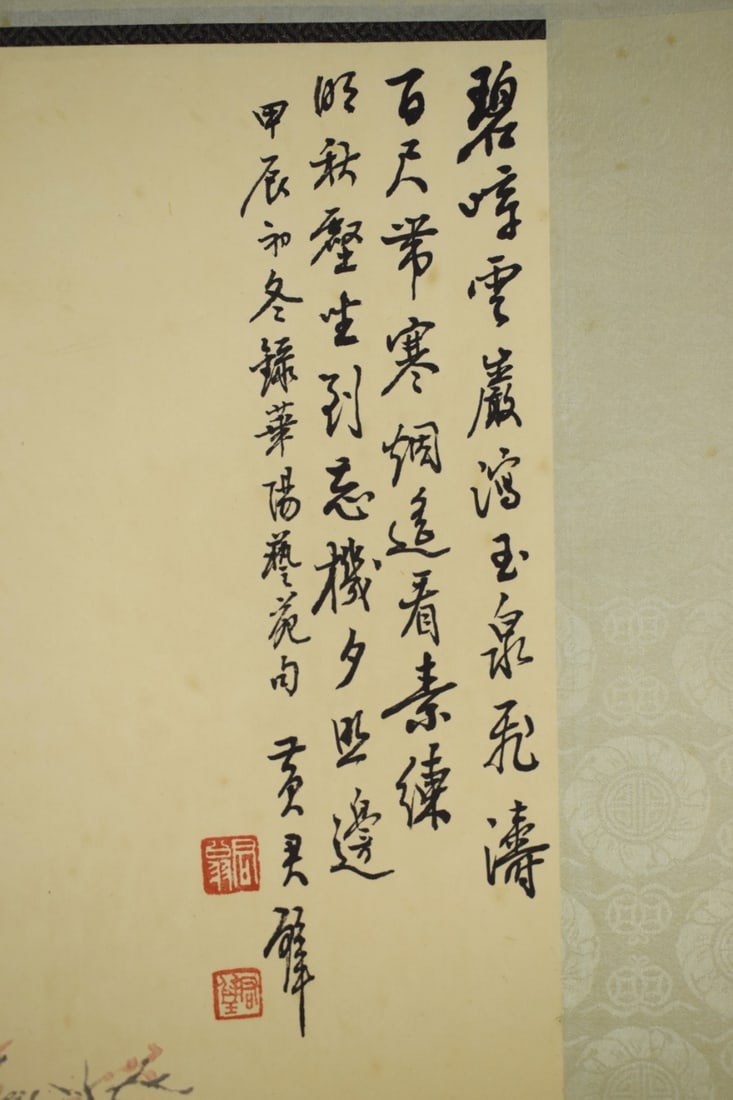 碧嶂雲巖瀉玉泉飛濤
百尺帶寒烟遙看素練
明秋壑坐到忘機夕照邊
甲辰初冬錄華陽藝苑句 黃君璧
君翁
君璧